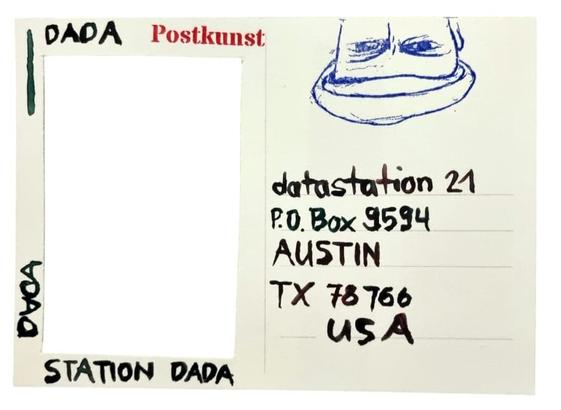 DADA Postkunst
datastation 21
P.O. Box 9594
AUSTIN
TX 78766
USA
DADA
STATION DADA